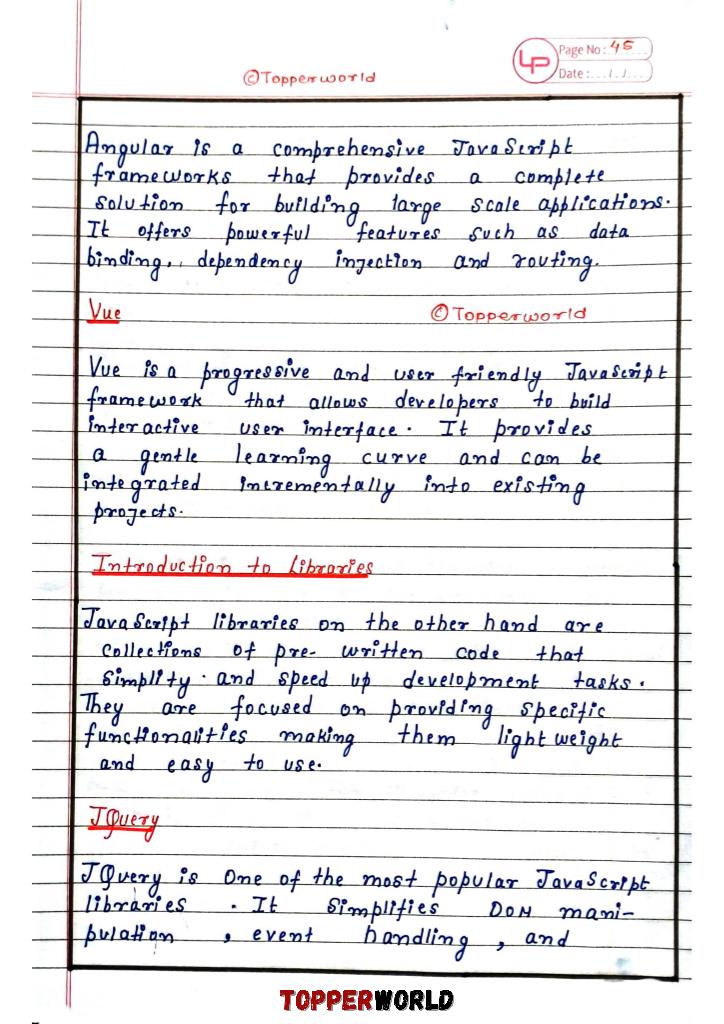 ©Topperworld
LP
Page No: 45
Date: / /
Angular is a comprehensive JavaScript
frameworks that provides a complete
solution for building large scale applications.
It offers powerful features such as data
binding, dependency injection and routing.
Vue
©Topperworld
Vue is a progressive and user friendly JavaScript
framework that allows developers to build
interactive user interface. It provides
a gentle learning curve and can be
integrated incrementally into existing
projects.
Introduction to Libraries
JavaScript libraries on the other hand are
collections of pre-written code that
simplity. and speed up development tasks.
They are focused on providing specific
functionalities making them lightweight
and easy to use.
JQuery
JQuery is One of the most popular JavaScript
libraries. It simplifies DOM mani-
pulation, event handling, and
TOPPERWORLD